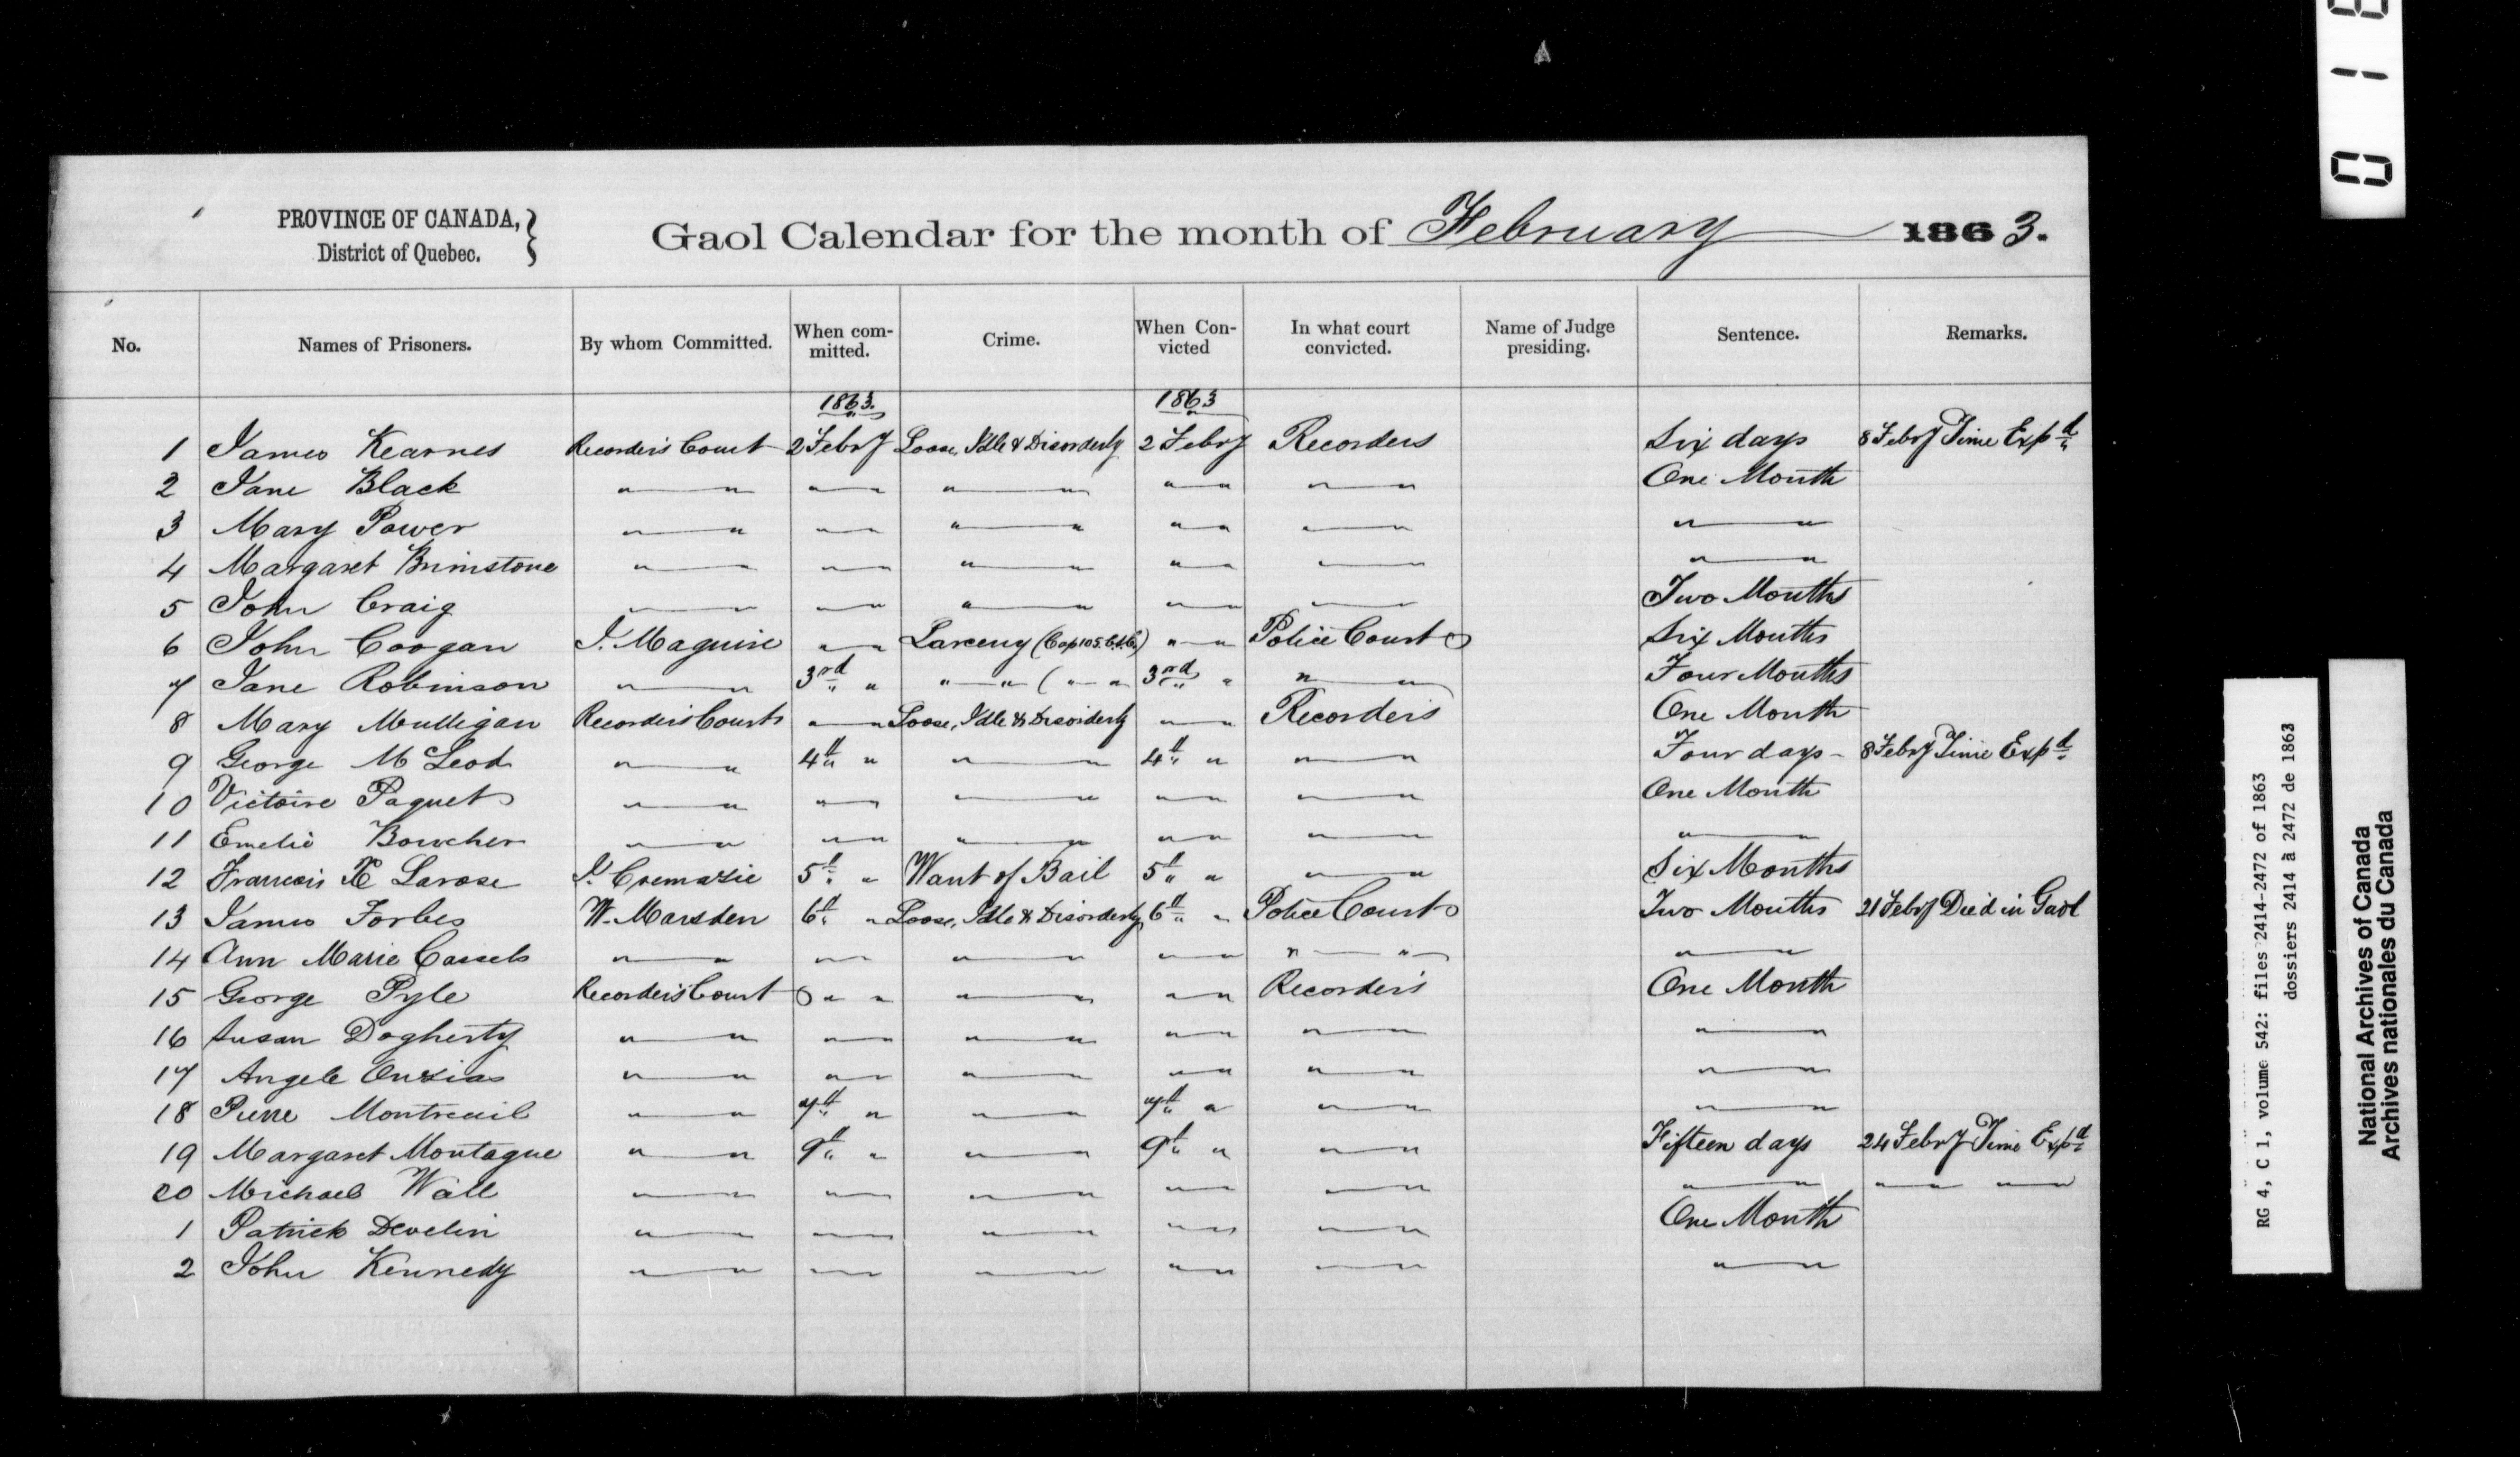 PROVINCE OF CANADA,
District of Quebec.
Gaol Calendar for the month of February 1863.
No. Names of Prisoners. By whom Committed. When committed. Crime. When Convicted In what court convicted. Name of Judge presiding. Sentence. Remarks.
1863. 1863
1 James Kearnes Recorders Court 2 Febry Loose, Idle & Disorderly 2 Febry Recorders Six days 8 Febry Time Expd
2 Jane Black " " " " " " " " " " One Month
3 Mary Power " " " " " " " " " " " "
4 Margaret Brimstone " " " " " " " " " " " "
5 John Craig " " " " " " " " " " Two Months
6 John Coogan J. Maguire " " Larceny (Cap 105. C.S.C.) " " Police Court Six Months
7 Jane Robinson " " 3rd " " " ( " " 3rd " " " Four Months
8 Mary Mulligan Recorders Court " " Loose, Idle & Disorderly " " Recorders One Month
9 George McLeod " " 4th " " " 4th " " " Four days - 8 Febry Time Expd
10 Victoire Paquet " " " " " " " " " " One Month
11 Emelie Bowcher " " " " " " " " " " " "
12 Francois X Larose J. Cremazie 5th " Want of Bail 5th " " " Six Months
13 James Forbes W. Marsden 6th " Loose, Idle & Disorderly 6th " Police Court Two Months 21 Febry Died in Gaol
14 Ann Marie Cassels " " " " " " " " " " " "
15 George Pyle Recorders Court " " " " " " Recorders One Month
16 Susan Dogherty " " " " " " " " " " " "
17 Angele Ouzias " " " " " " " " " " " "
18 Pierre Montreuil " " 7th " " " 7th " " " " "
19 Margaret Montague " " 9th " " " 9th " " " Fifteen days 24 Febry Time Expd
20 Michael Wall " " " " " " " " " " " " " " " "
1 Patrick Develin " " " " " " " " " " One Month
2 John Kennedy " " " " " " " " " " " "
RG 4, C 1, volume 542: files 2414-2472 of 1863
dossiers 2414 à 2472 de 1863
National Archives of Canada
Archives nationales du Canada